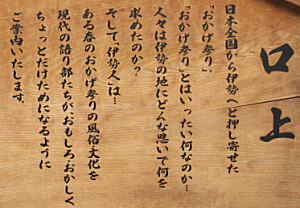 口上
日本全国から伊勢へと押し寄せた
「おかげ参り」、
「おかげ参り」とはいったい何なのか…
人々は伊勢の地にどんな思いで何を
求めたのか？
そして、伊勢人は…
ある春のおかげ参りの風俗・文化を
現代の語り部たちが、おもしろおかしく
ちょっとだけためになるように
ご案内いたします。